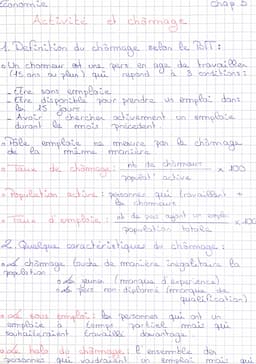 Economie Chap 5
Activité et chômage
1. Définition du chômage selon le BIT :
Un chomeur est une pers. en age de travailler
(15 ans ou plus) qui repond à 3 conditions :
- Etre sans emploie
- Etre disponible pour prendre un emploi dans
les 15 jours
- Avoir chercher activement un emploie
durant le mois précédant
Pôle emploie ne mesure pas le chômage
de la même manière
Taux de chômage : nb de chômeurs / populat° active x 100
Population active : personnes qui travaillent +
le chomeurs
Taux d'emploie : nb de pers ayant un emploi / population totale x 100
2. Quelques caractéristiques du chômage :
Le chômage touche de manière inégalitaire la
population
jeune (manque d'experience)
pers non-diplomé (manque de
qualification)
Le sous emploi : les personnes qui ont un
emploie à temps partiel mais qui
souhaiteraient travaillé davantage
Le halo du chômage : l'ensemble des
personnes qui voudraient un emploi mais qui